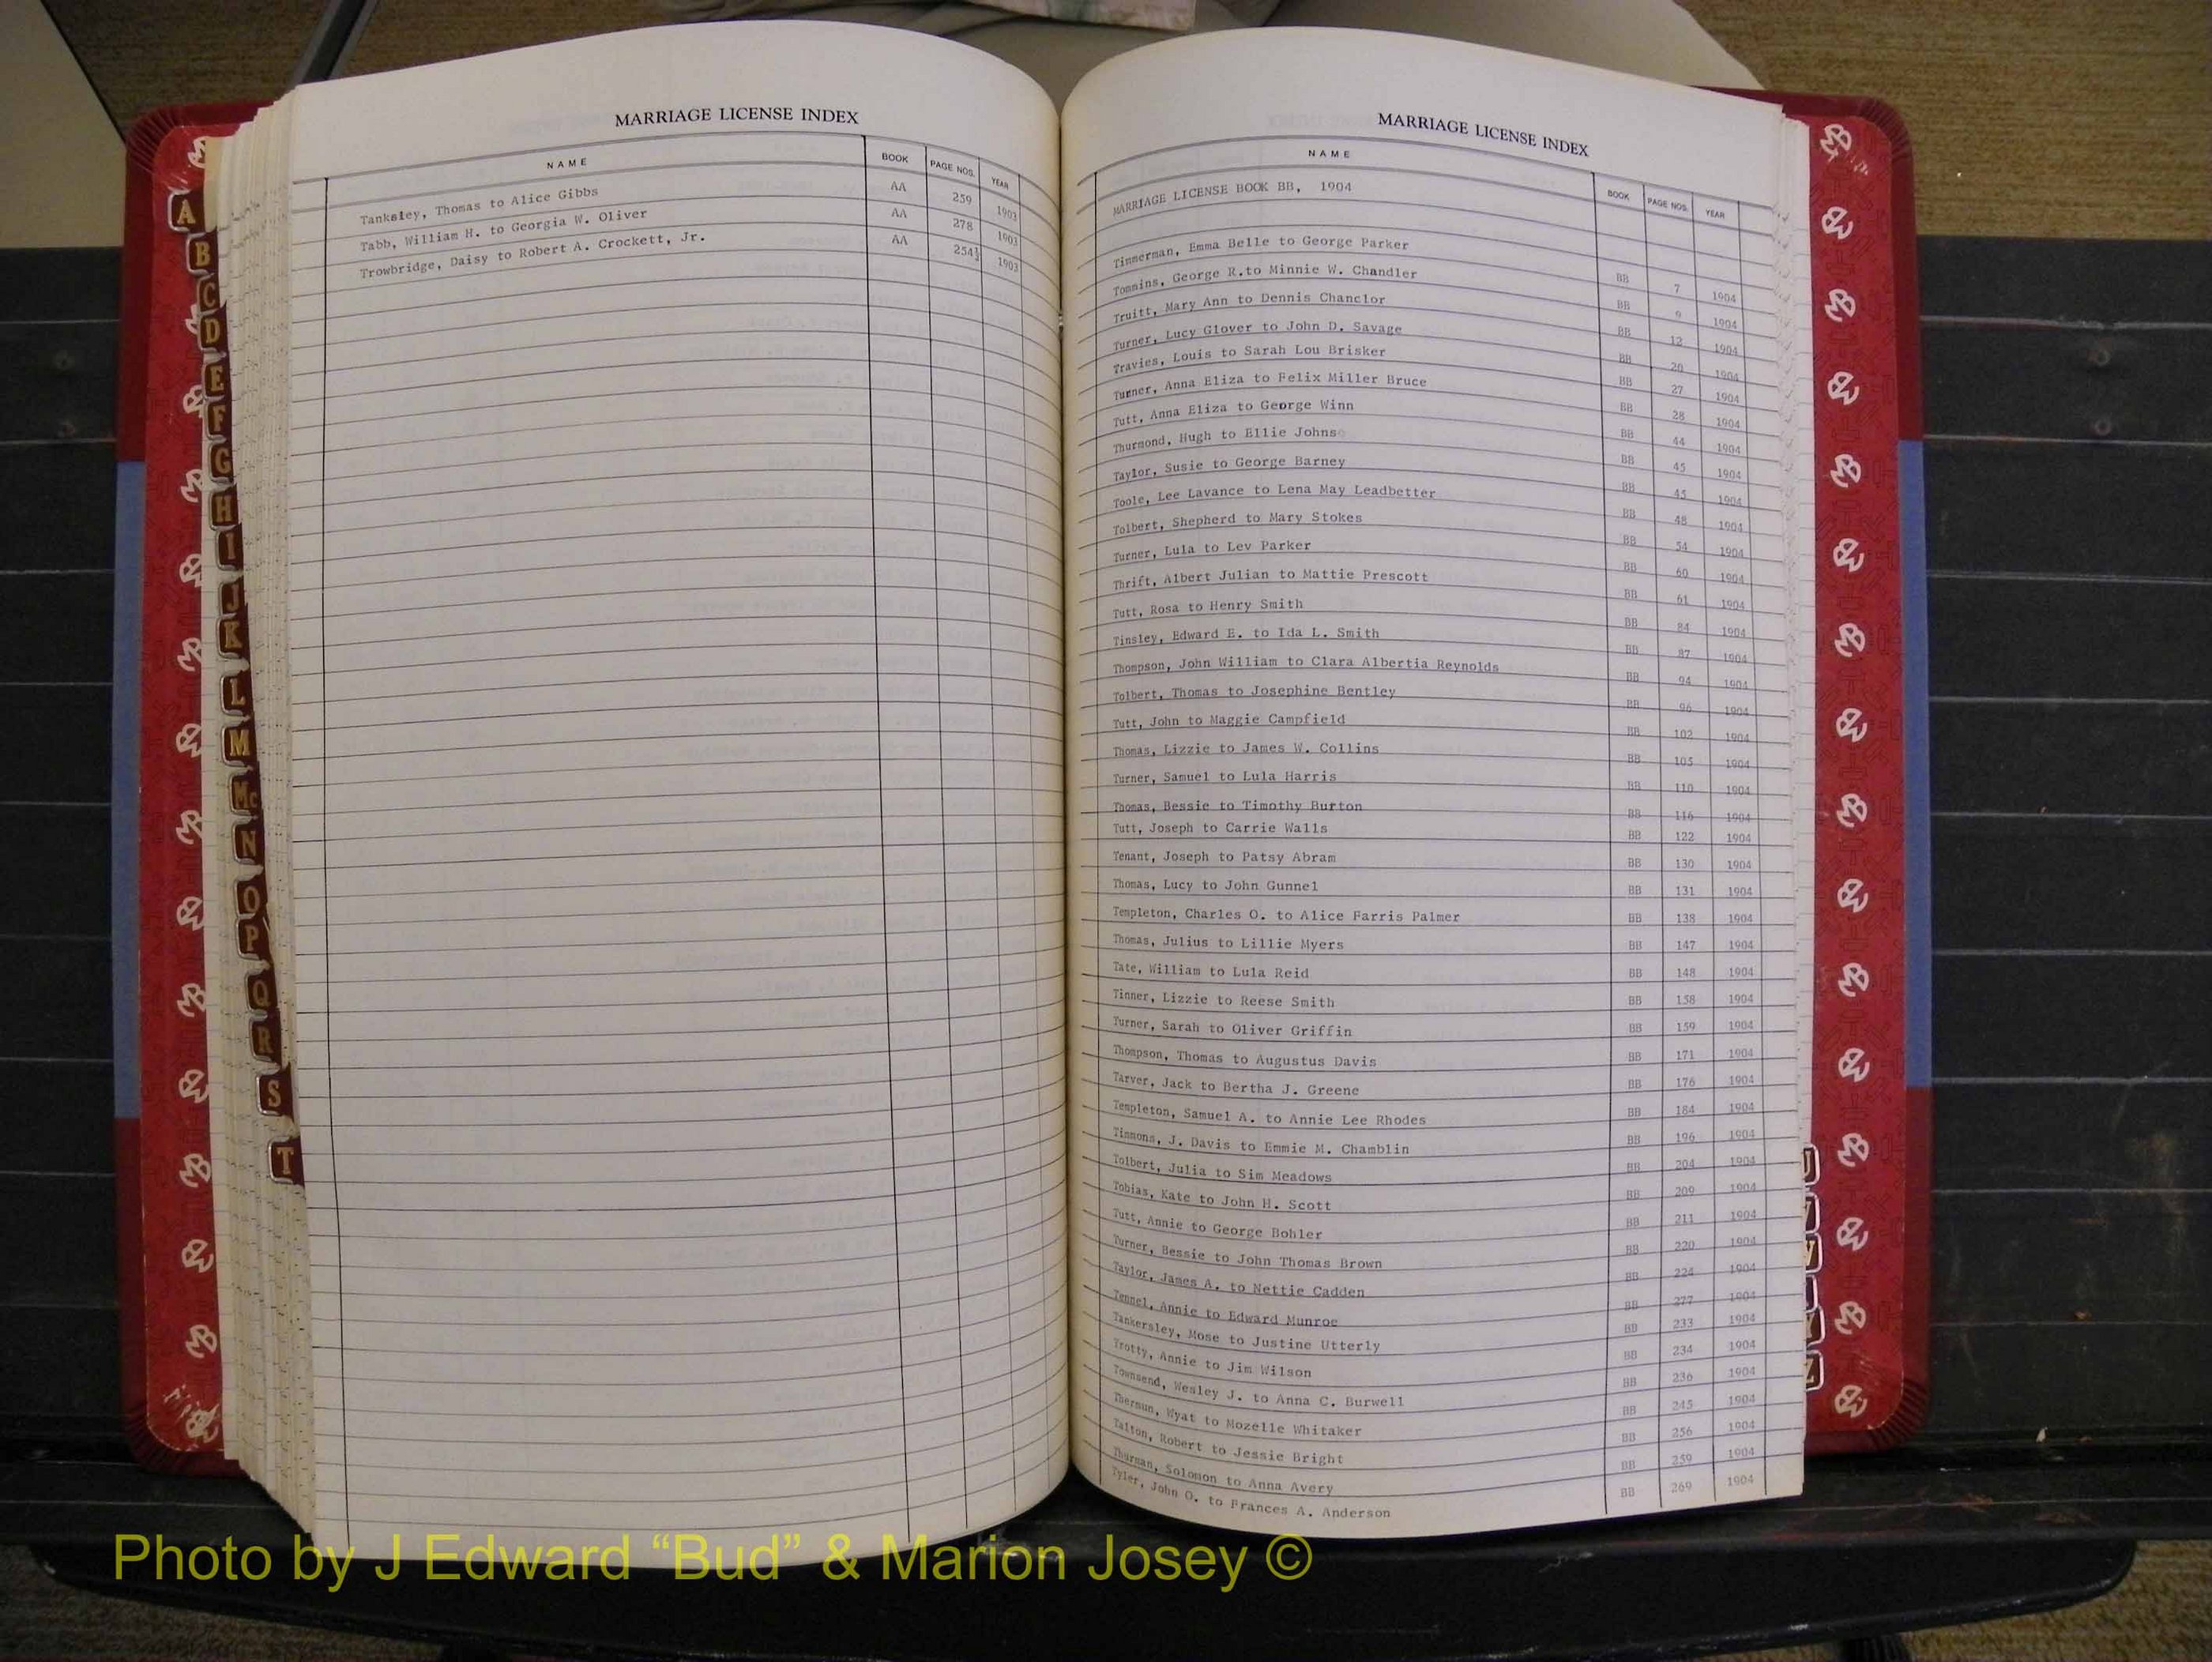 MARRIAGE LICENSE INDEX
NAME BOOK PAGE NOS. YEAR
Tanksley, Thomas to Alice Gibbs AA 259 1903
Tabb, William H. to Georgia W. Oliver AA 278 1903
Trowbridge, Daisy to Robert A. Crockett, Jr. AA 254½ 1903
MARRIAGE LICENSE INDEX
NAME BOOK PAGE NOS. YEAR
MARRIAGE LICENSE BOOK BB, 1904
Timmerman, Emma Belle to George Parker BB 7 1904
Tommins, George R.to Minnie W. Chandler BB 9 1904
Truitt, Mary Ann to Dennis Chanclor BB 12 1904
Turner, Lucy Glover to John D. Savage BB 20 1904
Travies, Louis to Sarah Lou Brisker BB 27 1904
Turner, Anna Eliza to Felix Miller Bruce BB 28 1904
Tutt, Anna Eliza to George Winn BB 44 1904
Thurmond, Hugh to Ellie Johnso BB 45 1904
Taylor, Susie to George Barney BB 45 1904
Toole, Lee Lavance to Lena May Leadbetter BB 48 1904
Tolbert, Shepherd to Mary Stokes BB 54 1904
Turner, Lula to Lev Parker BB 60 1904
Thrift, Albert Julian to Mattie Prescott BB 61 1904
Tutt, Rosa to Henry Smith BB 84 1904
Tinsley, Edward E. to Ida L. Smith BB 87 1904
Thompson, John William to Clara Albertia Reynolds BB 94 1904
Tolbert, Thomas to Josephine Bentley BB 96 1904
Tutt, John to Maggie Campfield BB 102 1904
Thomas, Lizzie to James W. Collins BB 105 1904
Turner, Samuel to Lula Harris BB 110 1904
Thomas, Bessie to Timothy Burton BB 116 1904
Tutt, Joseph to Carrie Walls BB 122 1904
Tenant, Joseph to Patsy Abram BB 130 1904
Thomas, Lucy to John Gunnel BB 131 1904
Templeton, Charles O. to Alice Farris Palmer BB 138 1904
Thomas, Julius to Lillie Myers BB 147 1904
Tate, William to Lula Reid BB 148 1904
Tinner, Lizzie to Reese Smith BB 158 1904
Turner, Sarah to Oliver Griffin BB 159 1904
Thompson, Thomas to Augustus Davis BB 171 1904
Tarver, Jack to Bertha J. Greene BB 176 1904
Templeton, Samuel A. to Annie Lee Rhodes BB 184 1904
Timmons, J. Davis to Emmie M. Chamblin BB 196 1904
Tolbert, Julia to Sim Meadows BB 204 1904
Tobias, Kate to John H. Scott BB 209 1904
Tutt, Annie to George Bohler BB 211 1904
Turner, Bessie to John Thomas Brown BB 220 1904
Taylor, James A. to Nettie Cadden BB 224 1904
Tennel, Annie to Edward Munroe BB 277 1904
Tankersley, Mose to Justine Utterly BB 233 1904
Trotty, Annie to Jim Wilson BB 234 1904
Townsend, Wesley J. to Anna C. Burwell BB 236 1904
Thermun, Wyat to Mozelle Whitaker BB 245 1904
Talton, Robert to Jessie Bright BB 256 1904
Thurman, Solomon to Anna Avery BB 259 1904
Tyler, John O. to Frances A. Anderson BB 269 1904
A
B
C
D
E
F
G
H
I
J
K
L
M
Mc
N
O
P
Q
R
S
T
U
Y
Z
Photo by J Edward “Bud” & Marion Josey ©